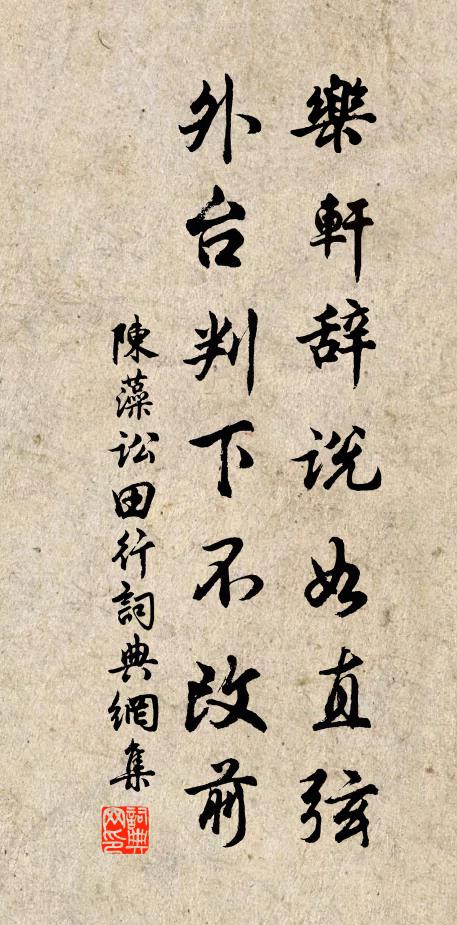 樂軒辞説如直弦
外台判下不改前
陳藻訟田行詞典網集
詞典網印